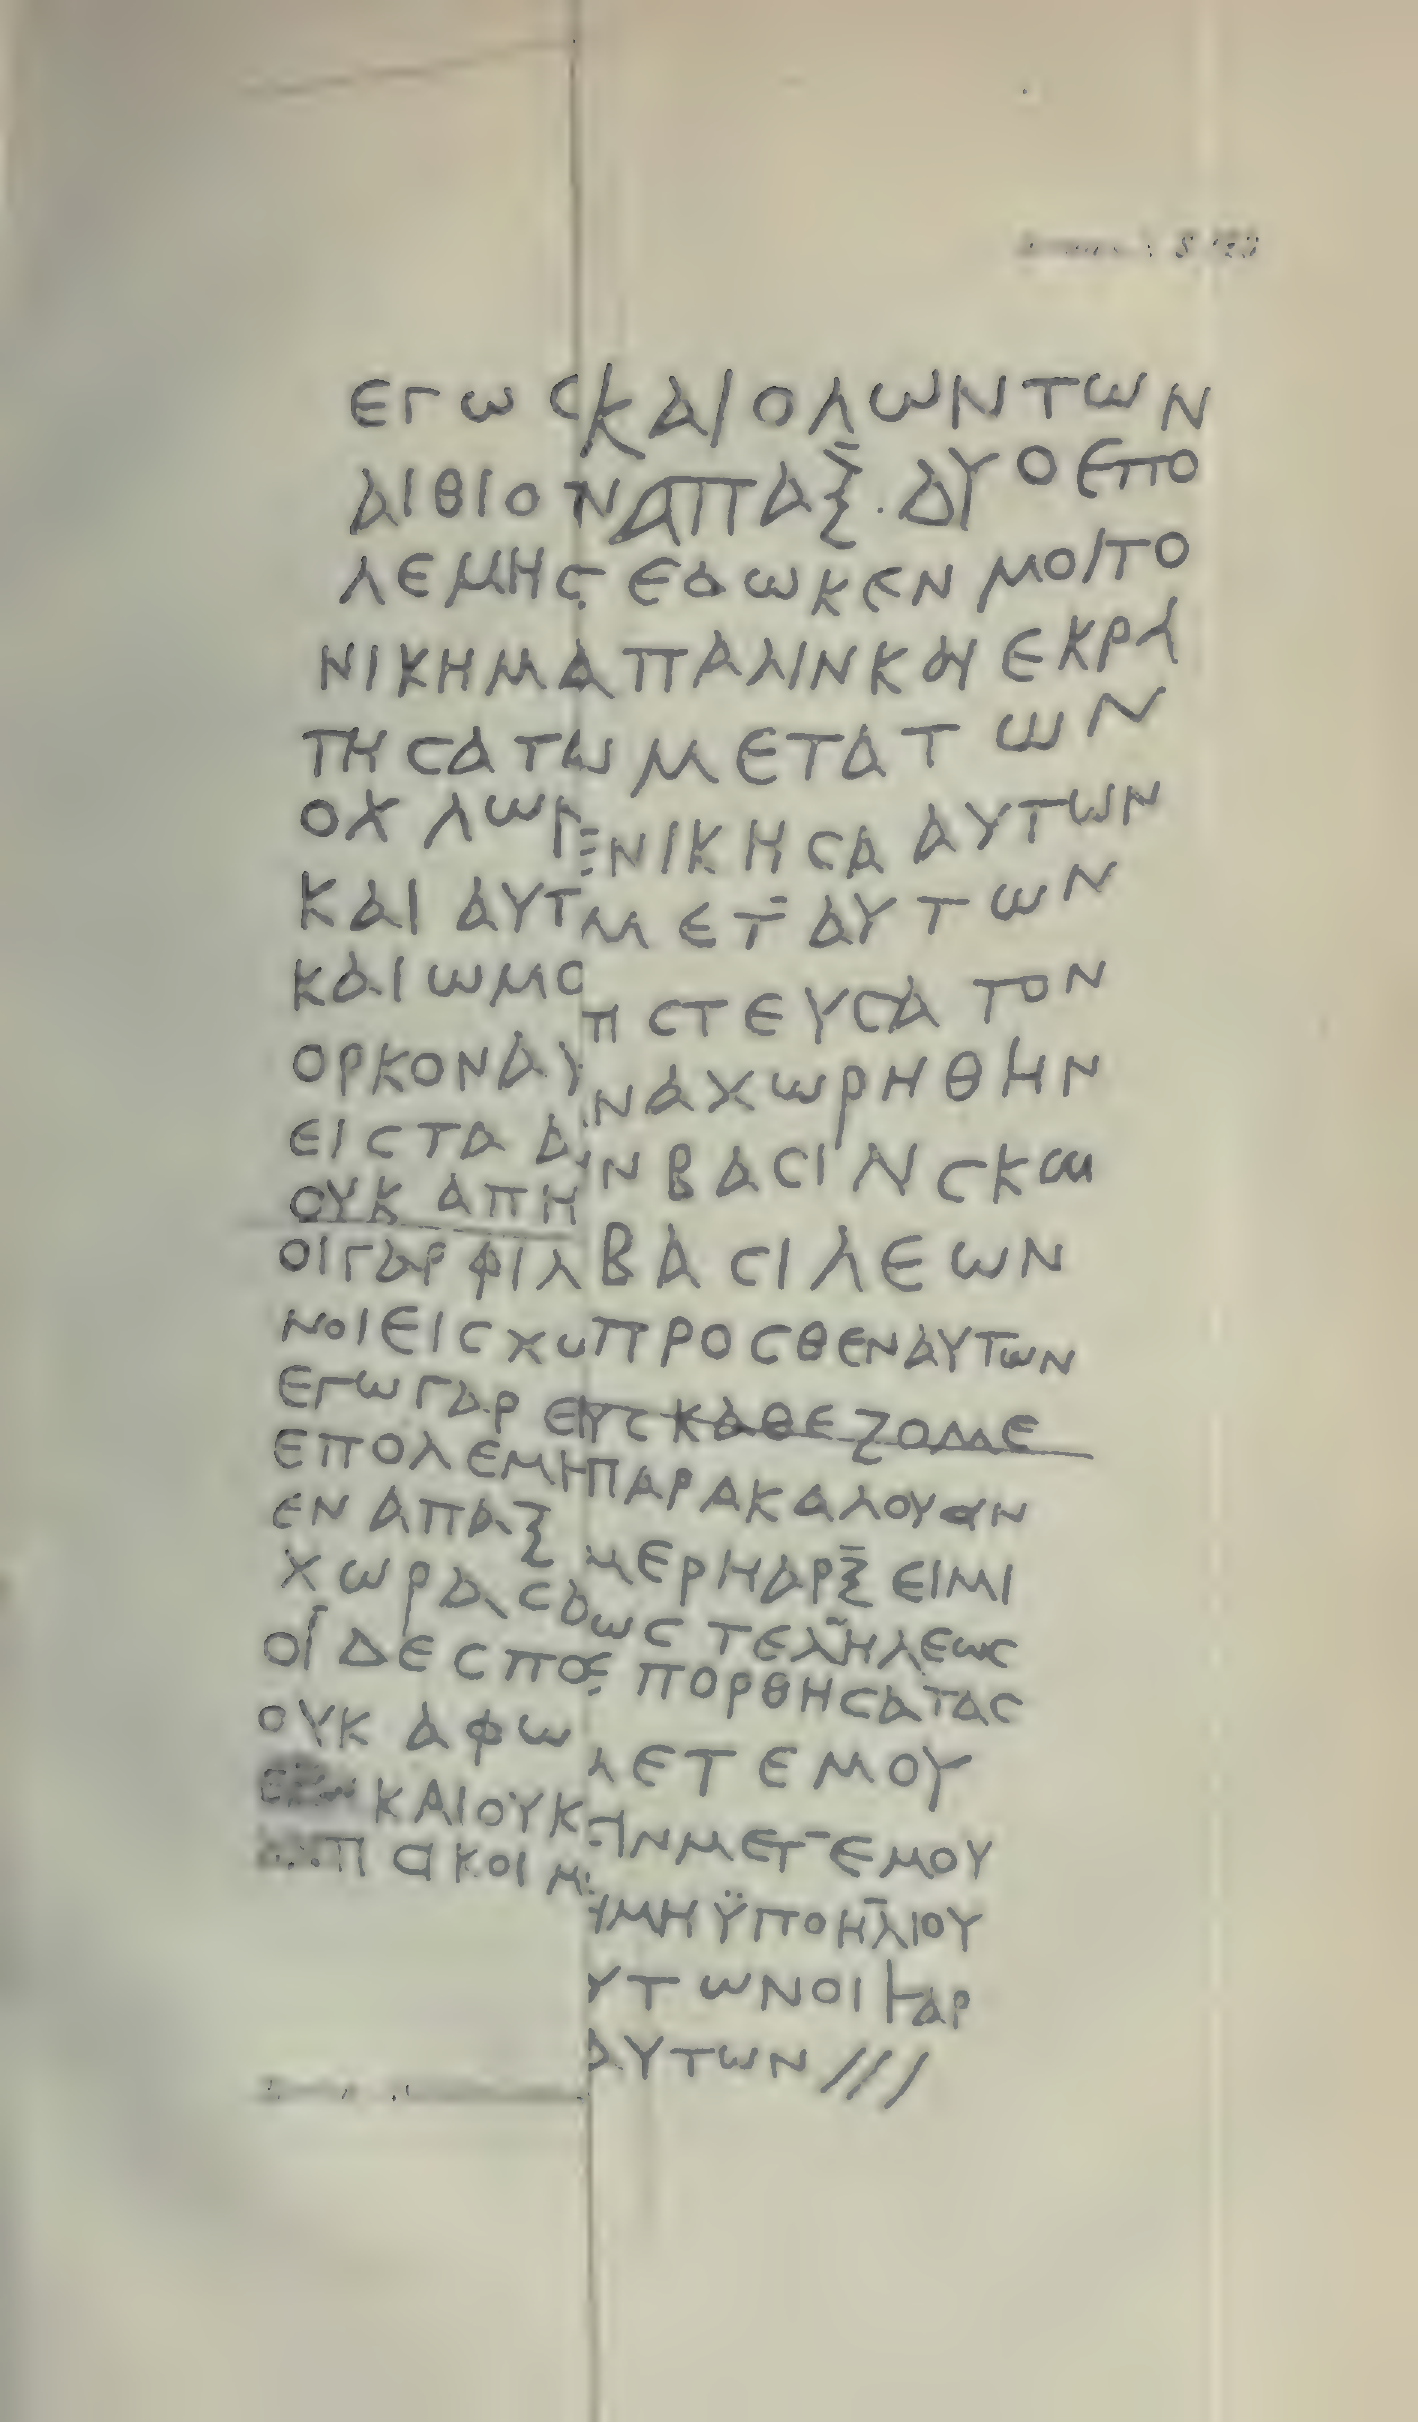 ΕΓΩ ϹΚΑΙΟΛΩΝΤΩΝ
ΑΙΘΙΟΝΑΠΑΞ.ΔΥΟΕΠΟ
ΛΕΜΗϹ ΕΔΩΚΕΝ ΜΟΙΤΟ
ΝΙΚΗΜΑΠΑΛΙΝΚΑΙ ΕΚΡΑ
ΤΗϹΑΤΩΜΕΤΑΤΩΝ
ΟΧΛΩΝ ΕΝΙΚΗϹΑ ΑΥΤΩΝ
ΚΑΙ ΑΥΤ ΜΕΤ ΑΥΤΩΝ
ΚΑΙ ΩΜΟ ΠϹΤΕΥϹΑ ΤΟΝ
ΟΡΚΟΝΑΥ ΝΑΧΩΡΗΘΗΝ
ΕΙϹΤΑ Α Ν ΒΑϹΙΝϹΚΑΙ
ΟΥΚ ΑΠΗ
ΟΙΓΑΡ ΦΙΛ ΒΑϹΙΛΕΩΝ
ΝΟΙΕΙϹΧΩ ΠΡΟϹΘΕΝΑΥΤΩΝ
ΕΓΩ ΓΑΡ ΕΙϹ ΚΑΘΕΖΟΜΕ
ΕΠΟΛΕΜΗ ΠΑΡΑΚΑΛΟΥΑΝ
ΕΝ ΑΠΑΞ ΜΕΡΗΑΡΞ ΕΙΜΙ
ΧΩΡΑϹ ΔΩϹ ΤΕΛΗΛΕΩϹ
ΟΙ ΔΕϹΠΟ Ε ΠΟΡΘΗϹΑΤΑϹ
ΟΥΚ ΑΦΩ ΛΕΤ ΕΜΟΥ
ΚΑΙΟΥΚ ΗΝΜΕΤ ΕΜΟΥ
Π ΑΚΟΙΜ ΙΜΗ ΫΠΟΗΛΙΟΥ
ΥΤΩΝΟΙ ΓΑΡ
ΑΥΤΩΝ ///